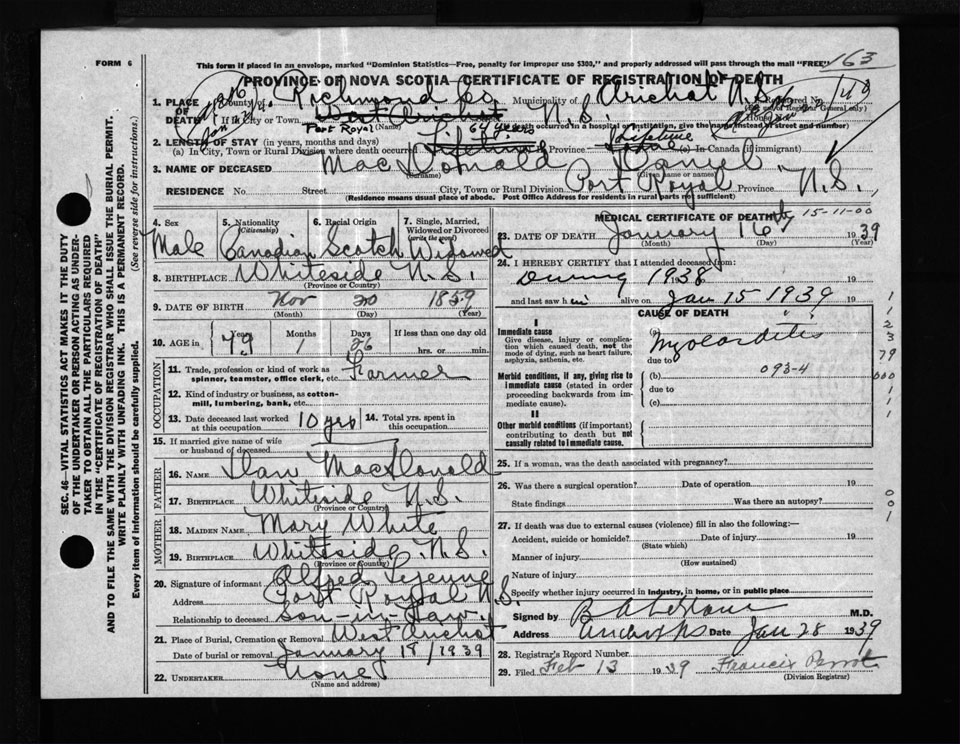 FORM 6
This form if placed in an envelope, marked "Dominion Statistics—Free, penalty for improper use $300," and properly addressed will pass through the mail "FREE"
163
PROVINCE OF NOVA SCOTIA CERTIFICATE OF REGISTRATION OF DEATH
149
1. PLACE OF DEATH County of Richmond Co Municipality of Arichat N.S. Registered No.
(For use of Registrar General only)
If in City or Town West Arichat N.S.
Port Royal (Name) (If death occurred in a hospital or institution, give the name instead of street and number)
2. LENGTH OF STAY (in years, months and days) 64 years
(a) In City, Town or Rural Division where death occurred Lifetime Province Lifetime (c) In Canada (if immigrant)
3. NAME OF DECEASED MacDonald Daniel
(Surname) (Given name or names)
RESIDENCE No. Street City, Town or Rural Division Port Royal Province N.S.
(Residence means usual place of abode. Post Office Address for residents in rural parts not sufficient)
4. Sex Male
5. Nationality (Citizenship) Canadian
6. Racial Origin Scotch
7. Single, Married, Widowed or Divorced (write the word) Widowed
8. BIRTHPLACE Whiteside N.S.
(Province or Country)
9. DATE OF BIRTH Nov 20 1859
(Month) (Day) (Year)
10. AGE in Years 79 Months 1 Days 26 If less than one day old
hrs. or min.
OCCUPATION
11. Trade, profession or kind of work as spinner, teamster, office clerk, etc. Farmer
12. Kind of industry or business, as cotton-mill, lumbering, bank, etc.
13. Date deceased last worked at this occupation 10 yrs
14. Total yrs. spent in this occupation
15. If married give name of wife or husband of deceased
FATHER
16. NAME Dan MacDonald
17. BIRTHPLACE Whiteside N.S.
(Province or Country)
MOTHER
18. MAIDEN NAME Mary White
19. BIRTHPLACE Whiteside N.S.
(Province or Country)
20. Signature of informant Alfred Lejeune
Address Port Royal N.S.
Relationship to deceased Son-in-Law.
21. Place of Burial, Cremation or Removal West Arichat
Date of burial or removal January 18/1939
22. UNDERTAKER None
(Name and address)
MEDICAL CERTIFICATE OF DEATH
15-11-00
23. DATE OF DEATH January 16 1939
(Month) (Day) (Year)
24. I HEREBY CERTIFY that I attended deceased from:
During 1938 19
and last saw h im alive on Jan 15 1939 19
CAUSE OF DEATH
I
Immediate cause
Give disease, injury or complication which caused death, not the mode of dying, such as heart failure, asphyxia, asthenia, etc.
(a) Myocarditis
due to
Morbid conditions, if any, giving rise to immediate cause (stated in order proceeding backwards from immediate cause).
(b) 093-4
due to
(c)
II
Other morbid conditions (if important) contributing to death but not causally related to immediate cause.
25. If a woman, was the death associated with pregnancy?
26. Was there a surgical operation? Date of operation 19
State findings Was there an autopsy?
27. If death was due to external causes (violence) fill in also the following:—
Accident, suicide or homicide? Date of injury 19
(State which)
Manner of injury
(How sustained)
Nature of injury
Specify whether injury occurred in industry, in home, or in public place
Signed by M.D.
Address Arichat NS Date Jan 28 1939
28. Registrar's Record Number
29. Filed Feb 13 1939 Francis
(Division Registrar)
SEC. 46—VITAL STATISTICS ACT MAKES IT THE DUTY
OF THE UNDERTAKER OR PERSON ACTING AS UNDERTAKER TO OBTAIN ALL THE PARTICULARS REQUIRED
IN THE "CERTIFICATE OF REGISTRATION OF DEATH"
AND TO FILE THE SAME WITH THE DIVISION REGISTRAR WHO SHALL ISSUE THE BURIAL PERMIT.
WRITE PLAINLY WITH UNFADING INK. THIS IS A PERMANENT RECORD.
Every item of information should be carefully supplied. (See reverse side for instructions.)